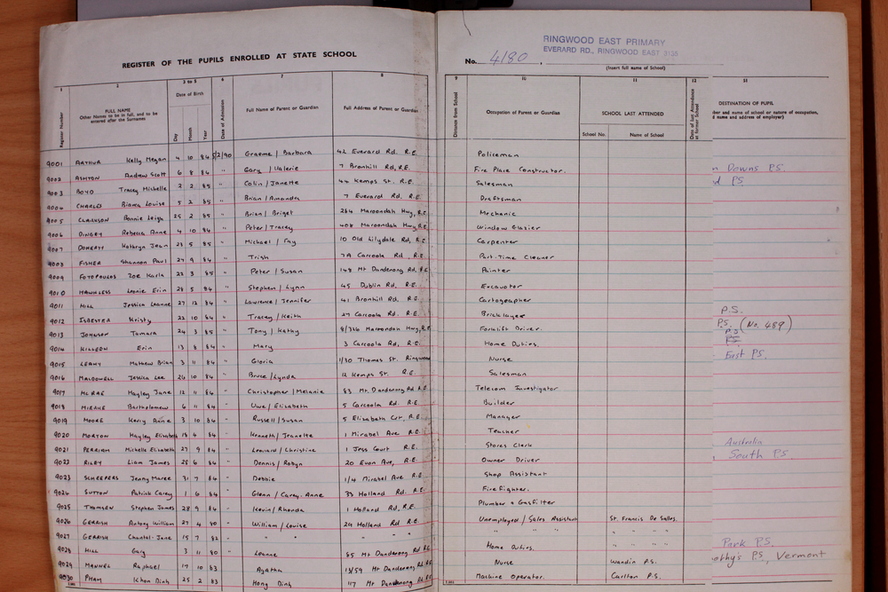 REGISTER OF THE PUPILS ENROLLED AT STATE SCHOOL
No. 4180
RINGWOOD EAST PRIMARY
EVERARD RD., RINGWOOD EAST 3135
(Insert full name of School)
1 2 3 to 5 6 7 8 9 10 11 12
Register Number
FULL NAME
Other Names to be in full, and to be entered after the Surnames
Date of Birth
Day Month Year
Date of Admission
Full Name of Parent or Guardian
Full Address of Parent or Guardian
Distance from School
Occupation of Parent or Guardian
SCHOOL LAST ATTENDED
School No. Name of School
Date of Last Attendance at former School
DESTINATION OF PUPIL
9001 ARTHUR Kelly Megan 4 10 84 5/2/90 Graeme / Barbara 42 Everard Rd. R.E. Policeman
9002 ASHTON Andrew Scott 6 8 84 " Gary / Valerie 7 Bronhill Rd, R.E. Fire Place Constructor. Downs PS
9003 BOYD Tracey Michelle 2 2 85 " Colin / Janette 44 Kemps St. R.E. Salesman PS
9004 CHARLES Bianca Louise 5 2 85 " Brian / Amanda 7 Everard Rd. R.E. Draftsman
9005 CLARKSON Bonnie Leigh 25 2 85 " Brian / Briget 264 Maroondah Hwy, R.E. Mechanic
9006 DINGBY Rebecca Anne 4 10 84 " Peter / Tracey 408 Maroondah Hwy, R.E. Window Glazier
9007 DOHERTY Kathryn Jean 23 5 85 " Michael / Fay 10 Old Lilydale Rd, R.E. Carpenter
9008 FISHER Shannon Paul 27 9 84 " Trish 7A Carcoola Rd. R.E. Part-Time Cleaner
9009 FOTOPOULOS Zoe Karla 22 3 85 " Peter / Susan 148 Mt Dandenong Rd, R.E. Painter
9010 Leonie Erin 28 5 84 " Stephen / Lynn 45 Dublin Rd. R.E. Excavator
9011 HILL Jessica Leanne 27 12 84 " Lawrence / Jennifer 41 Bronhill Rd. R.E. Cartographer P.S.
9012 Kristy 22 10 84 " Tracey / Keith 27 Carcoola Rd. R.E. Bricklayer P.S. (No. 489)
9013 JOHNSON Tamara 24 3 85 " Tony / Kathy 8/336 Maroondah Hwy, R.E. Forklift Driver. P.S
9014 KILLEON Erin 13 8 84 " Mary 3 Carcoola Rd, R.E. Home Duties. PS
9015 LEAHY Mathew Brian 3 11 84 " Gloria 1/30 Thomas St. Ringwood Nurse East PS.
9016 MACDONELL Jessica Lee 26 10 84 " Bruce / Lynda 12 Kemps St. R.E. Salesman
9017 MCRAE Hayley Jane 12 11 84 " Christopher / Melanie 83 Mt. Dandenong Rd R.E. Telecom Investigator
9018 Bartholomew 6 11 84 " Uwe / Elizabeth 5 Carcoola Rd. R.E. Builder
9019 MOORE Kerry Anne 3 10 84 " Russell / Susan 5 Elizabeth Crt, R.E. Manager
9020 MORTON Hayley Elizabeth 15 4 84 " Kenneth / Jeanette 1 Mirabel Ave R.E. Teacher
9021 PERRIAM Michelle Elizabeth 27 9 84 " Leonard / Christine 1 Jess Court R.E. Stores Clerk Australia
9022 RIXBY Liam James 25 6 84 " Dennis / Robyn 20 Evan Ave, R.E. Owner Driver South PS
9023 SCHEEPERS Jenny Maree 31 7 84 " Debbie 1/4 Mirabel Ave R.E. Shop Assistant
9024 SUTTON Patrick Carey 1 6 84 " Glenn / Carey-Anne 33 Holland Rd. R.E. Fire fighter.
9025 THOMSEN Stephen James 28 9 84 " Kevin / Rhonda 1 Holland Rd, R.E. Plumber & Gasfitter
9026 GERRISH Antony William 27 4 80 " William / Louise 24 Holland Rd R.E. Unemployed / Sales Assistant St. Francis De Sales.
9027 GERRISH Chantal-Jane 15 7 82 " " " " "
9028 HILL Gary 3 11 80 " Leanne 85 Mt Dandenong Rd R.E. Home Duties. Park PS.
9029 Raphael 17 10 83 Agatha 13/59 Mt Dandenong Rd R.E. Nurse Wandin P.S. PS, Vermont
9030 PHAM Khan Dinh 25 2 83 Hong Dinh 117 Mt Dandenong Rd R.E. Machine Operator. Carlton P.S.